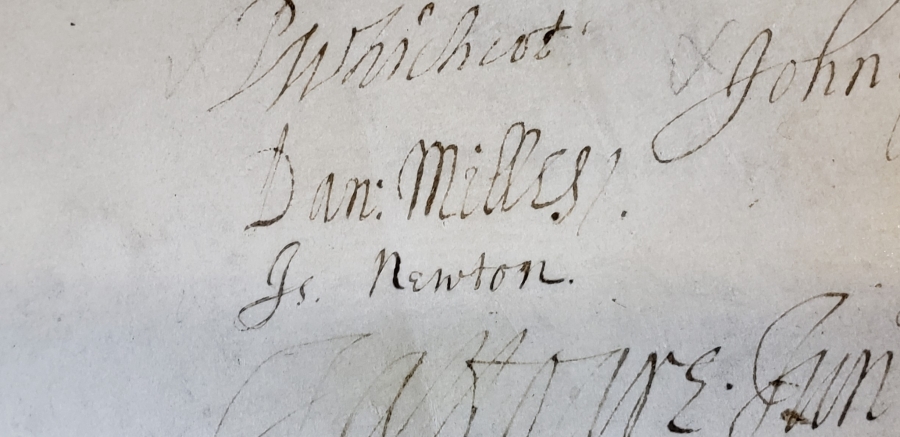 PWhichcot: John
Dan: Milles.
Is. Newton.
Jun